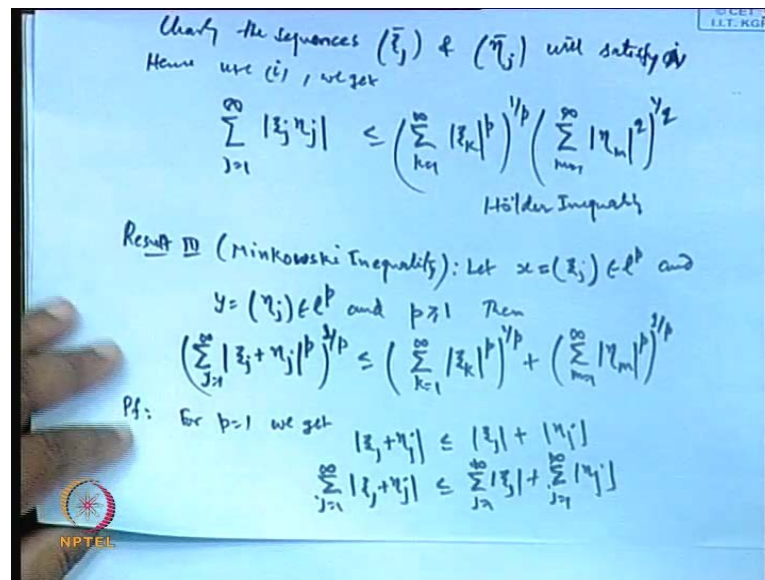 © CET
I.I.T. KGP
Clearly the sequences (ξ̄_j) & (η̄_j) will satisfy (i)
Hence use (i), we get
∑_{j=1}^∞ |ξ_j η_j| ≤ (∑_{k=1}^∞ |ξ_k|^p)^{1/p} (∑_{m=1}^∞ |η_m|^q)^{1/q}
Hölder Inequality
Result III (Minkowski Inequality): Let x=(ξ_j) ∈ l^p and
y=(η_j) ∈ l^p and p≥1 Then
(∑_{j=1}^∞ |ξ_j+η_j|^p)^{1/p} ≤ (∑_{k=1}^∞ |ξ_k|^p)^{1/p} + (∑_{m=1}^∞ |η_m|^p)^{1/p}
Pf: For p=1 we get
|ξ_j+η_j| ≤ |ξ_j| + |η_j|
∑_{j=1}^∞ |ξ_j+η_j| ≤ ∑_{j=1}^∞ |ξ_j| + ∑_{j=1}^∞ |η_j|
NPTEL